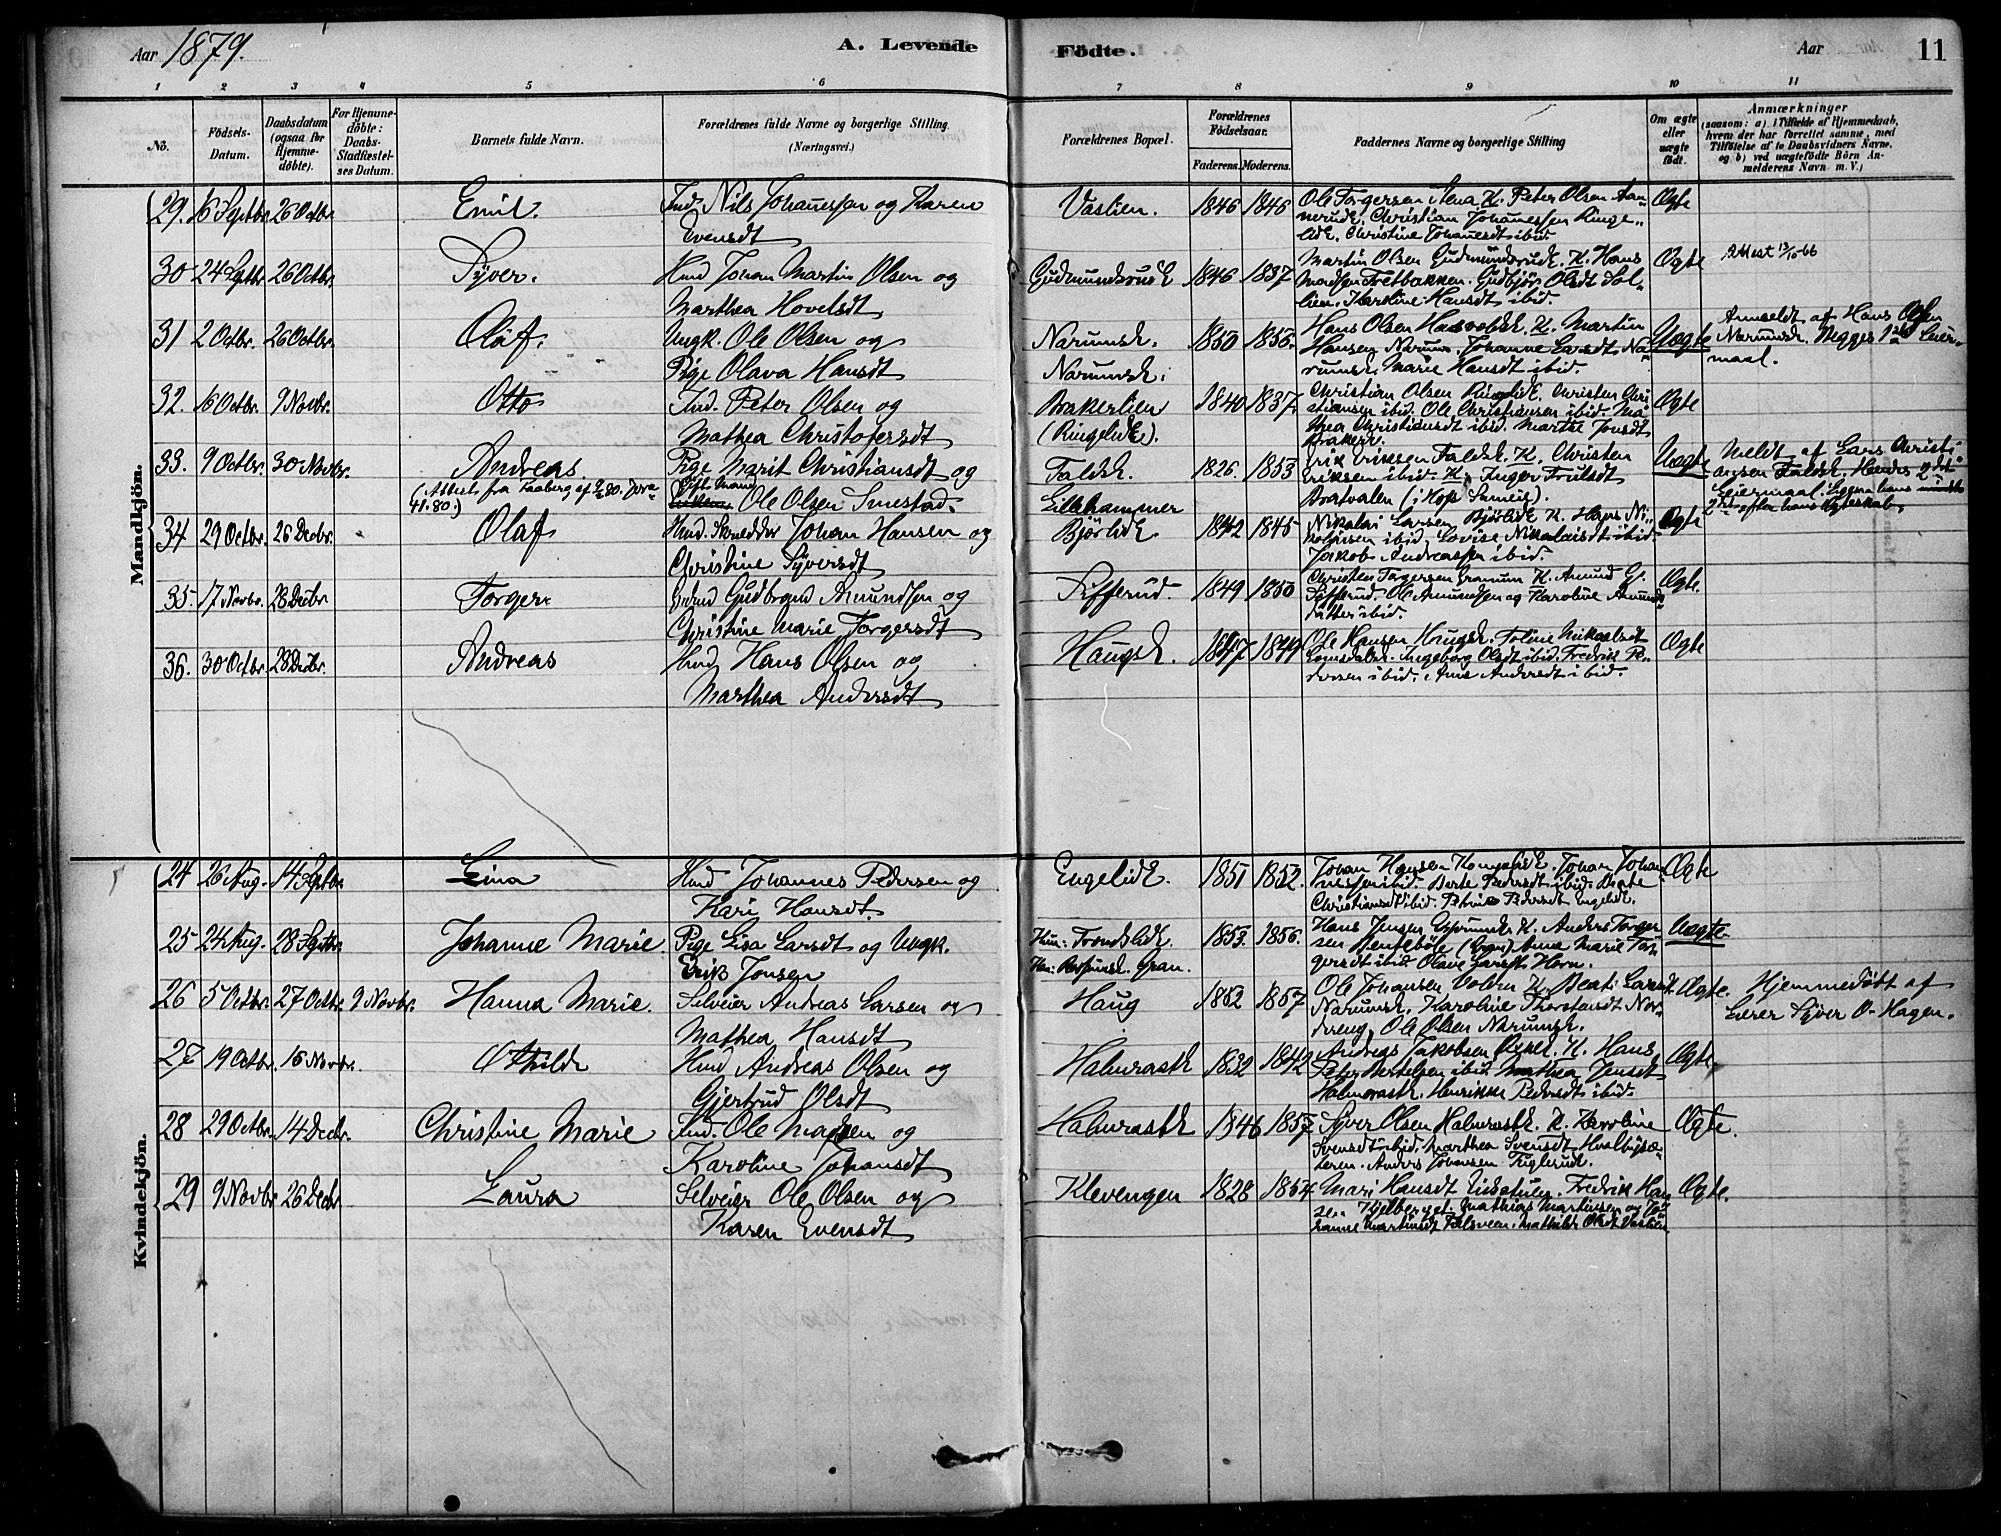 Aar 1879.
A. Levende
Födte.
Aar
11
1 2 3 4 5 6 7 8 9 10 11
No.
Födsels-
Datum.
Daabsdatum
(ogsaa for
Hjemme-
döbte).
For Hjemme-
döbte:
Daabs-
Stadfæstel-
ses Datum.
Barnets fulde Navn.
Forældrenes fulde Navne og borgerlige Stilling.
(Næringsvei.)
Forældrenes Bopæl.
Forældrenes
Födselsaar.
Faderens. Moderens.
Faddernes Navne og borgerlige Stilling
Om ægte
eller
uægte
födt.
Anmærkninger
(saasom: a) i Tilfælde af Hjemmedaab,
hvem der har forrettet samme, med
Tilföielse af to Daabsvidners Navne,
og b) ved uægtefödte Börn An-
melderens Navn m. V.)
Mandkjön.
29. 16 Septbr 26 Octbr. Emil. Ind. Nils Johannessen og Karen
Evensdt
Vaslien. 1846 1846
Ole Torgersen Lena K. Peter Olsen Aan-
nerude. Christian Johannessen Ringe-
lide. Christine Johannesdt ibid.
Ægte
30 24 Septbr 26 Octbr. Syver. Husd Johan Martin Olsen og
Marthea Hovelsdt
Gudmundsrude 1846 1837
Martin Olsen Gudmundsrude. K. Hans
Madsen Fretbakken. Gudbjör Olsdt Sol-
lien. Karoline Hansdt ibid.
Ægte
Attest 13/10 66
31 2 Octbr. 26 Octbr. Olaf. Ungk. Ole Olsen og
Pige Olava Hansdt
Narumsk.
Narumsk.
1850 1855.
Hans Olsen K. Martin
Hansen Narum. Johanne Larsdt Na-
rumsk. Marie Hansdt ibid.
Uægte
Anmeldt af Hans Olsen
Narumsk. Begges 1ste Leier-
maal.
32. 16 Octbr. 9 Novbr. Otto Ind. Peter Olsen og
Mathea Christofersdt
Brakerlien
(Ringelide).
1840 1837.
Christian Olsen Ringelide. Christen Chri-
stiansen ibid. Ole Christiansen ibid. Ma-
thea Christiansdt ibid. Marte Jonsdt
Ægte
33. 9 Octbr. 30 Novbr. Andreas
(Attest fra Faaberg af 2/2 80.
41.80.)
Pige Marit Christiansdt og
Gift Mand
Ole Olsen Smestad.
Faldsk.
Lillehammer
1826 1853
Erik Eriksen Faldsk. K. Christen
Eriksen ibid. K. Inger
Uægte
Meldt af Lars Christi-
ansen Faldsk. Hendes 2det
Leiermaal.
2det efter hans Ægteskab.
34 29 Octbr. 26 Decbr. Olaf Husd. Skredder Johan Hansen og
Christine Syversdt
Bjørlide 1842 1845
Nikolai Larsen Bjørlide K. Hans Ni-
kolaisen ibid. Lovise Nikolaisdt ibid.
Jakob Andreassen ibid.
Ægte
35. 17 Novbr. 28 Decbr. Torger Gudbrand Amundsen og
Christine Marie Torgersdt
Sifferud 1849 1850
Christen Torgersen Granum K. Amund G.
Sifferud. Ole Amundsen og Karoline Amunds-
datter ibid.
Ægte.
36. 30 Octbr. 28 Decbr. Andreas Husd Hans Olsen og
Marthea Andersdt
Haugsk. 1847 1844
Ole Hansen Haugsk. Toline Mikaelsdt
Ingeborg Olsdt ibid. Fredrik Pe-
dersen ibid. Ane Andersdt ibid.
Ægte
Kvindekjön.
24 26 Aug. 14 Septbr. Lina Husd Johannes Pedersen og
Kari Hansdt.
Engelide. 1851 1852.
Johan Hansen Johan Johan-
nessen ibid. Berte Pedersdt ibid. Berte
Christiansdt ibid. Pedersdt Engelide.
Ægte
25 24 Aug. 28 Septbr. Johanne Marie. Pige Lisa Larsdt og Ungk.
Erik Jonsen
Hun: Trondslide
Han: Gran.
1853. 1856.
Hans Jensen K. Anders Torger-
sen (Gran) Anne Marie Tor-
gersdt ibid. Olave Larsdt Horn.
Uægte
26 5 Octbr. 27 Octbr. 9 Novbr. Hanna Marie. Selveier Andreas Larsen og
Mathea Hansdt
Haug 1852 1857
Ole Johansen K. Beate Larsdt
Narumsk. Karoline Thorstensdt Nor-
dreng. Ole Olsen Narumsk.
Ægte.
Hjemmedöbt af
Lærer Syver O. Hagen.
27 19 Octbr. 16 Novbr. Othilde Husd Andreas Olsen og
Gjertrud Olsdt
Halmrastk 1832 1842
Andreas Jakobsen K. Hans
Peter Bertelsen ibid. Mathea Jensdt
Halmrastk. Henrikke Pedersdt ibid.
Ægte.
28 29 Octbr. 14 Decbr. Christine Marie Ind. Ole Madsen og
Karoline Johansdt
Halmrastk 1846 1857
Syver Olsen Halmrastk. K. Karoline
Svensdt ibid. Marthea Svensdt Hvalbysæ-
teren. Anders Johansen Fuglerude.
Ægte.
29 9 Novbr 26 Decbr Laura Selveier Ole Olsen og
Karen Evensdt
Klevengen 1828 1854.
Mari Hansdt Eidsstuen. Fredrik Han-
sen Kjelberget. Mathias Martinsen og Jo-
hanne Martinsdt Mathilde Olsdt Vaslien
Ægte.